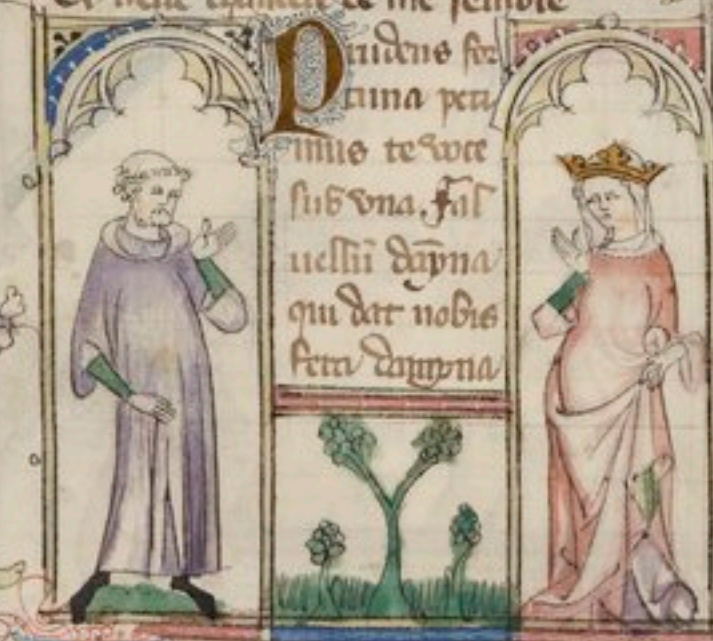 ce me semble
Prudens for
tuna peti
mus te voce
sub vna. Fal
uellū dāpna
qui dat nobis
fera dampna